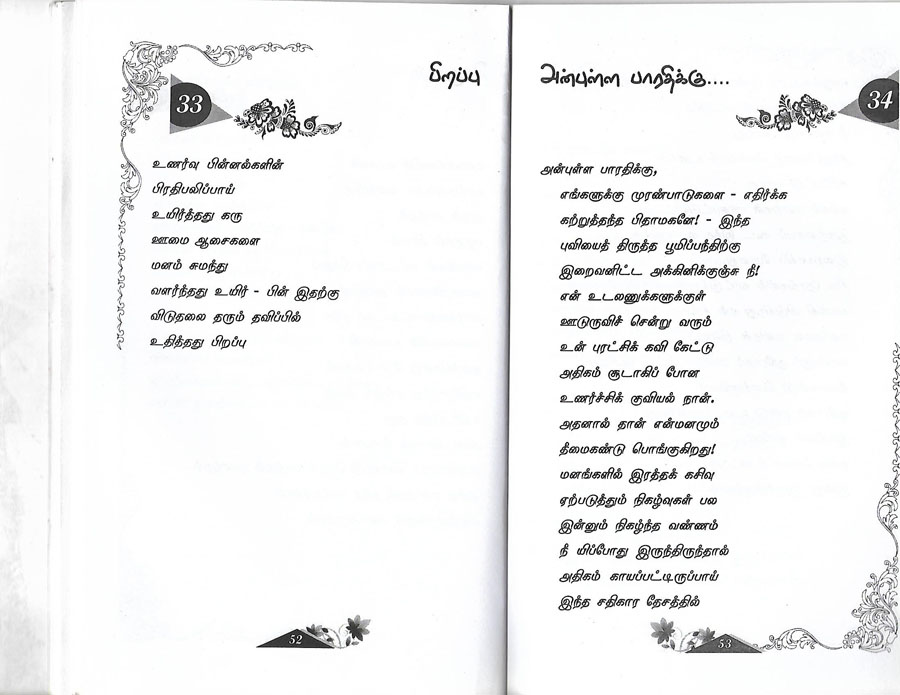 பிறப்பு
33
உணர்வு பின்னல்களின்
பிரதிபலிப்பாய்
உயிர்த்தது கரு
ஊமை ஆசைகளை
மனம் சுமந்து
வளர்ந்தது உயிர் - பின் இதற்கு
விடுதலை தரும் தவிப்பில்
உதித்தது பிறப்பு
52
அன்புள்ள பாரதிக்கு....
34
அன்புள்ள பாரதிக்கு,
எங்களுக்கு முரண்பாடுகளை - எதிர்க்க
கற்றுத்தந்த பிதாமகனே! - இந்த
புவியைத் திருத்த பூமிப்பந்திற்கு
இறைவனிட்ட அக்கினிக்குஞ்சு நீ!
என் உடலணுக்களுக்குள்
ஊடுருவிச் சென்று வரும்
உன் புரட்சிக் கவி கேட்டு
அதிகம் சூடாகிப் போன
உணர்ச்சிக் குவியல் நான்.
அதனால் தான் என்மனமும்
தீமைகண்டு பொங்குகிறது!
மனங்களில் இரத்தக் கசிவு
ஏற்படுத்தும் நிகழ்வுகள் பல
இன்னும் நிகழ்ந்த வண்ணம்
நீ யிப்போது இருந்திருந்தால்
அதிகம் காயப்பட்டிருப்பாய்
இந்த சதிகார தேசத்தில்
53